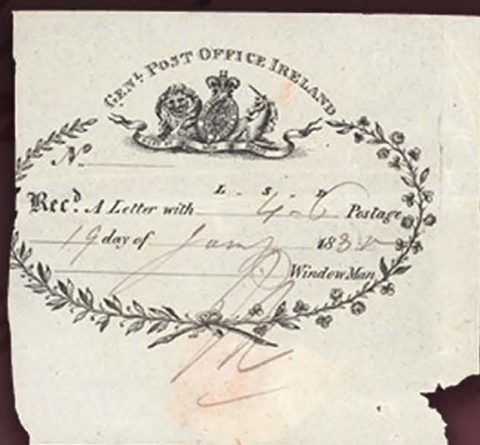 GENL POST OFFICE IRELAND
No
L. S. D
Recd. A Letter with 4 6 Postage
19 day of Jany 183
Window Man